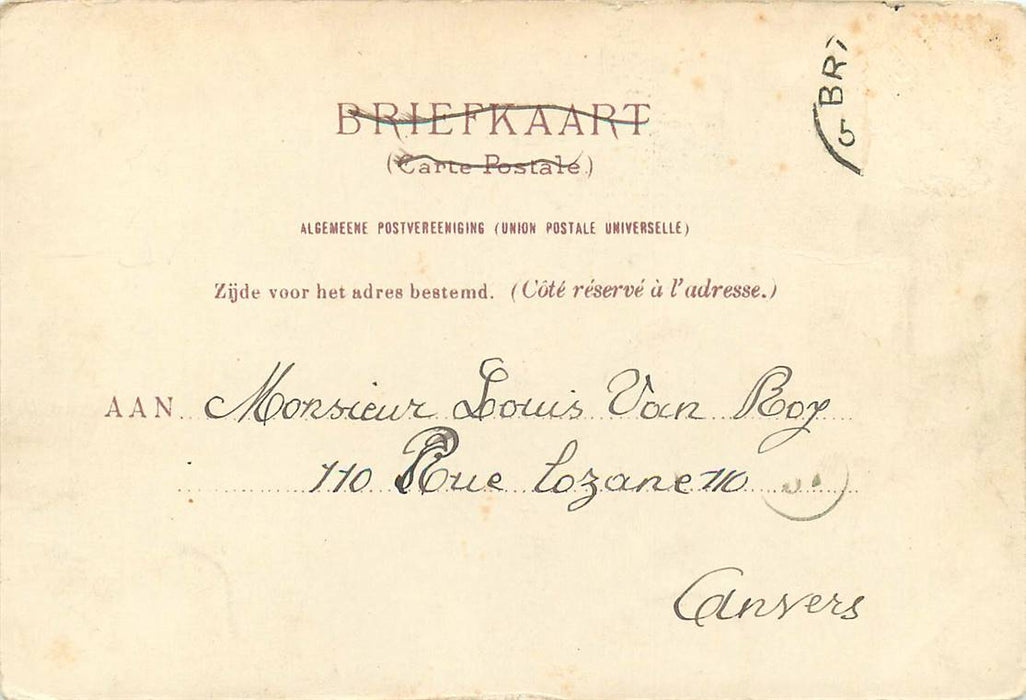 BRIEFKAART
(Carte Postale)
ALGEMEENE POSTVEREENIGING (UNION POSTALE UNIVERSELLE)
Zijde voor het adres bestemd. (Côté réservé à l'adresse.)
AAN Monsieur Louis Van Roy
110 Rue Lozane 110
Anvers
BRI
5